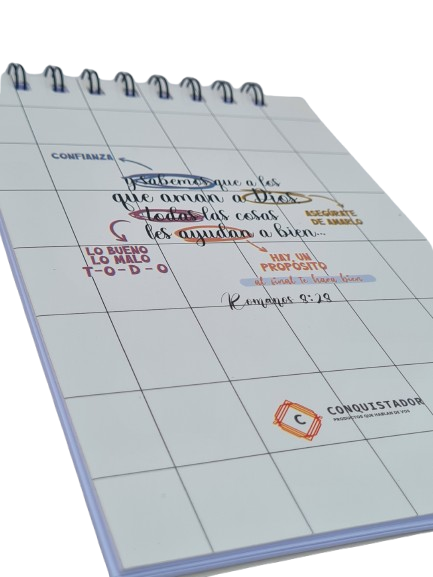 CONFIANZA
y sabemos que a los
que aman a Dios
todas las cosas
les ayudan a bien...
ASEGÚRATE
DE AMARLO
LO BUENO
LO MALO
T-O-D-O
HAY UN
PROPÓSITO
al final te hará bien
Romanos 8:28
C
CONQUISTADOR
PRODUCTOS QUE HABLAN DE VOS